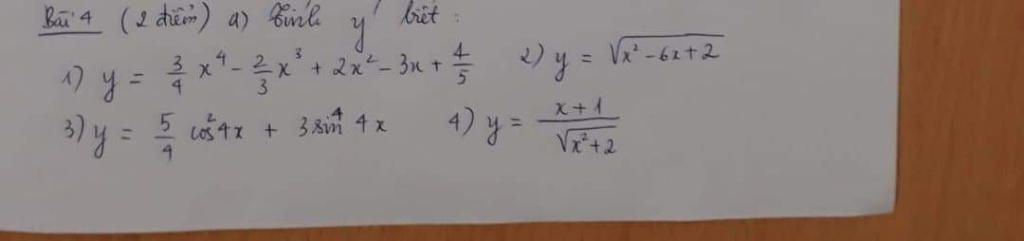 Bài 4 (2 điểm) a) Tính y' biết :
1) y = 3/4 x⁴ - 2/3 x³ + 2x² - 3x + 4/5 2) y = √(x² - 6x + 2)
3) y = 5/4 cos²4x + 3 sin⁴ 4x 4) y = (x + 1)/√(x² + 2)